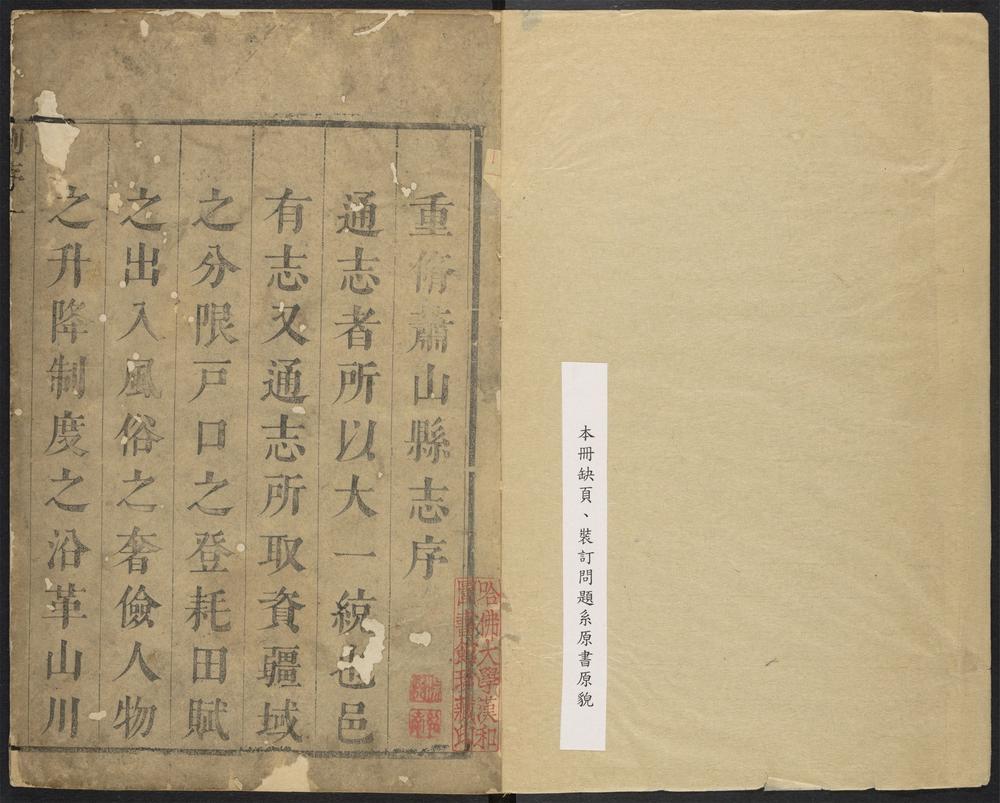 本冊缺頁、裝訂問題系原書原貌
重脩蕭山縣志序
通志者所以大一統也邑
有志又通志所取資疆域
之分限戶口之登耗田賦
之出入風俗之奢儉人物
之升降制度之沿革山川
哈佛大學漢和
圖書館珍藏印